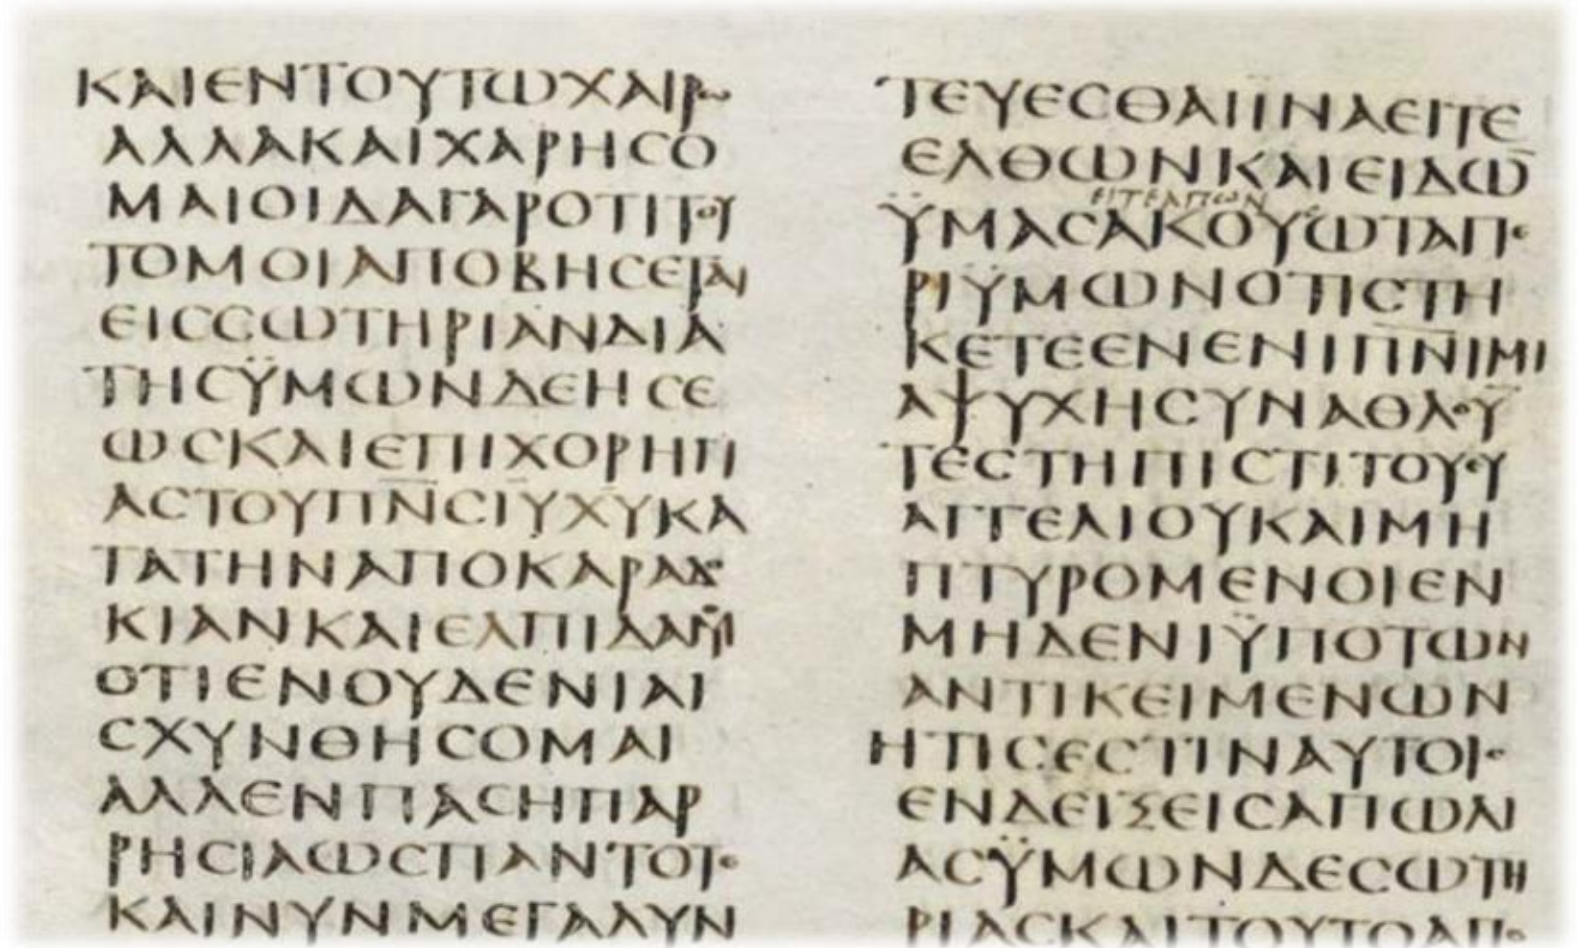 ΚΑΙΕΝΤΟΥΤΩΧΑΙΡω
ΑΛΛΑΚΑΙΧΑΡΗϹΟ
ΜΑΙΟΙΔΑΓΑΡΟΤΙΤΟΥ
ΤΟΜΟΙΑΠΟΒΗϹΕΤΑΙ
ΕΙϹϹΩΤΗΡΙΑΝΔΙΑ
ΤΗϹΫΜΩΝΔΕΗϹΕ
ΩϹΚΑΙΕΠΙΧΟΡΗΓΙ
ΑϹΤΟΥΠ̅Ν̅Ϲ̅Ι̅Υ̅Χ̅Υ̅ΚΑ
ΤΑΤΗΝΑΠΟΚΑΡΑΔο
ΚΙΑΝΚΑΙΕΛΠΙΔΑΜΟΥ
ΟΤΙΕΝΟΥΔΕΝΙΑΙ
ϹΧΥΝΘΗϹΟΜΑΙ
ΑΛΛΕΝΠΑϹΗΠΑΡ
ΡΗϹΙΑΩϹΠΑΝΤΟΤε
ΚΑΙΝΥΝΜΕΓΑΛΥΝ
ΤΕΥΕϹΘΑΙΪΝΑΕΙΤΕ
ΕΛΘΩΝΚΑΙΕΙΔΩ̅
ΕΙΤΕΑΠΩΝ
ΫΜΑϹΑΚΟΥΩΤΑΠε
ΡΙΫΜΩΝΟΤΙϹΤΗ
ΚΕΤΕΕΝΕΝΙΠ̅Ν̅ΙΜΙ
ΑΨΥΧΗϹΥΝΑΘΛΟΥ̅
ΤΕϹΤΗΠΙϹΤΙΤΟΥευ
ΑΓΓΕΛΙΟΥΚΑΙΜΗ
ΠΤΥΡΟΜΕΝΟΙΕΝ
ΜΗΔΕΝΙΫΠΟΤΩΝ
ΑΝΤΙΚΕΙΜΕΝΩΝ
ΗΤΙϹΕϹΤΙΝΑΥΤΟΙϲ
ΕΝΔΕΙΞΕΙϹΑΠΩΛΙ
ΑϹΫΜΩΝΔΕϹΩΤΗ
ΡΙΑϹΚΑΙΤΟΥΤΟΑΠο